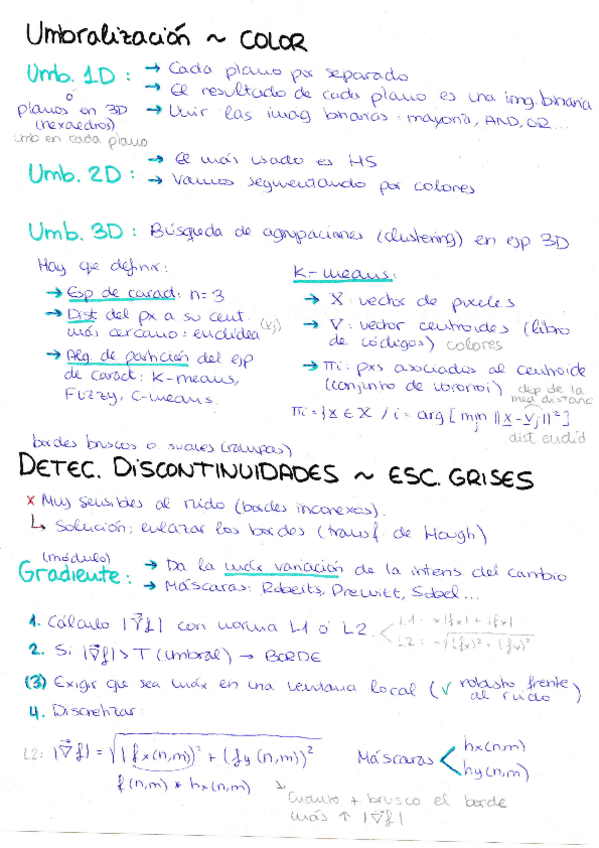 Umbralización ~ COLOR
Umb. 1D: → Cada plano por separado
ó → El resultado de cada plano es una img. binaria
planos en 3D → Unir las imag binarias: mayoría, AND, OR...
(hexaedros)
umb en cada plano
Umb. 2D: → El más usado es HS
→ Vamos segmentando por colores
Umb. 3D: Búsqueda de agrupaciones (clustering) en esp 3D
Hay que definir:
→ Esp de caract: n=3
→ Dist del px a su cent. más cercano: euclídea (vj)
→ Alg. de partición del esp de caract: K-means, Fuzzy, C-means.
K-means:
→ X: vector de pixeles
→ V: vector centroides (libro de códigos) colores
→ πi: pxs asociados al centroide (conjunto de voronoi) dep de la med distanc
πi = {x ∈ X / i = arg [min j ||x - vj||²]
dist euclid
bordes bruscos o suaves (rampas)
DETEC. DISCONTINUIDADES ~ ESC. GRISES
x Muy sensibles al ruido (bordes inconexos).
↳ Solución: enlazar los bordes (transf. de Hough)
(módulo)
Gradiente: → Da la máx variación de la intens del cambio
→ Máscaras: Roberts, Prewitt, Sobel...
1. Cálculo |∇f| con norma L1 ó L2. < L1: |fx|+|fy|
L2: √(fx)²+(fy)²
2. Si |∇f| > T (umbral) → BORDE
(3) Exigir que sea máx en una ventana local (√ robusto frente al ruido)
4. Discretizar:
L2: |∇f| = √(fx(n,m))² + (fy(n,m))²
f(n,m) * hx(n,m)
Máscaras < hx(n,m)
hy(n,m)
↘ Cuanto + brusco el borde
más ↑ |∇f|